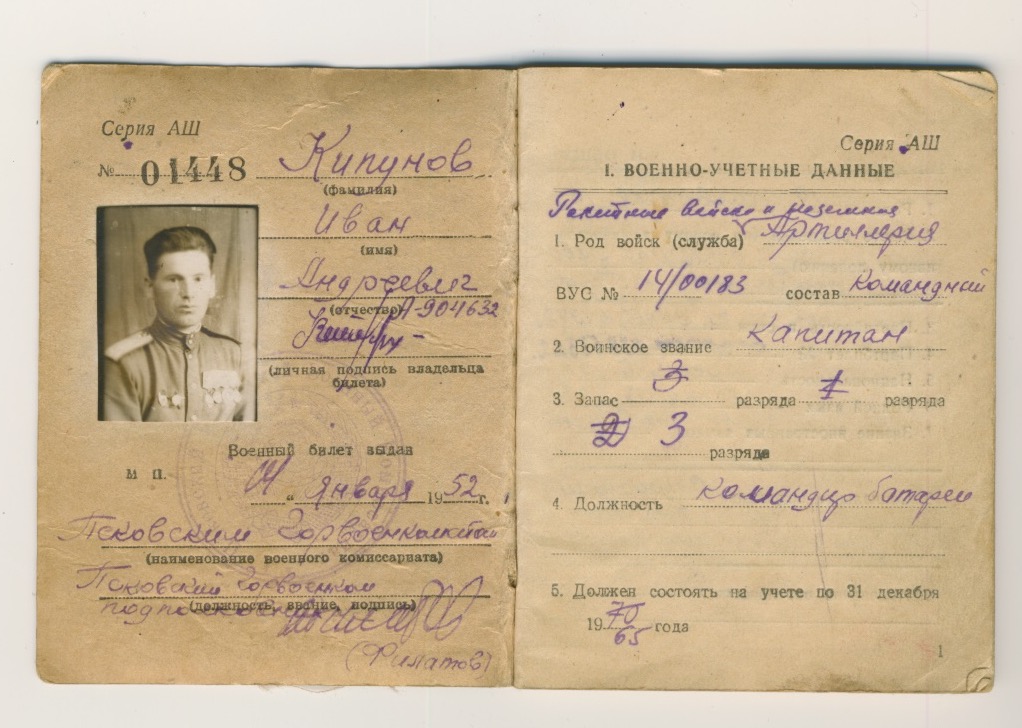 Серия АШ
№ 01448 Кипунов
(фамилия)
Иван
(имя)
Андреевич
(отчество) А-904632
(личная подпись владельца
билета)
Военный билет выдан
М П.
января 1952 г.
Псковским Горвоенкоматом
(наименование военного комиссариата)
Псковский Горвоенком
подполковник
(должность, звание, подпись)
(Филатов)
Серия АШ
I. ВОЕННО-УЧЕТНЫЕ ДАННЫЕ
Ракетные войска и наземная
1. Род войск (служба) Артиллерия
ВУС № 14/00183 состав командный
2. Воинское звание Капитан
3. Запас 3 разряда 1 разряда
2 3 разряда
4. Должность командир батареи
5. Должен состоять на учете по 31 декабря
1970 года
65
1